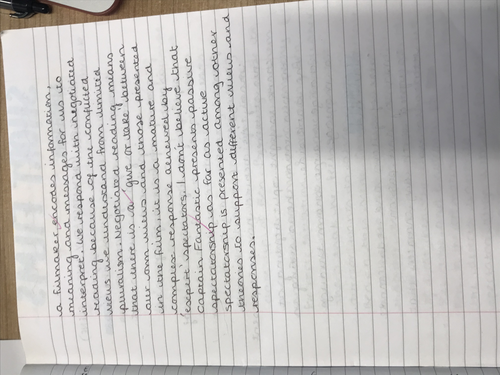 a filmmaker encodes information,
meaning and messages for us to
interpret. We respond with negotiated
reading because of the conflicted
views we understand from limited
pluralism. Negotiated reading means
that there is a 'give or take' between
our own views and those presented
in the film. it is a mature and
complex response achieved by
'expert' spectators. I don't believe that
Captain Fantastic presents passive
spectatorship as far as active
spectatorship is presented among other
theories to support different views and
responses.